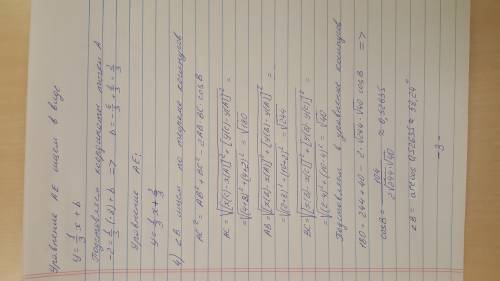 Уравнение AE ищем в виде
y = 1/3 x + b
Подставляем координаты точки A
-2 = 1/3 (-2) + b => b = -6/3 + 2/3 = -4/3
Уравнение AE:
y = 1/3 x + 4/3
4) ∠B ищем по теореме косинусов
AC² = AB² + BC² - 2 AB · BC · cos B
AC = √[x(C) - x(A)]² + [y(C) - y(A)]² =
= √(4+2)² + (4+2)² = √180
AB = √[x(B) - x(A)]² + [y(B) - y(A)]² =
= √(8+2)² + (10+2)² = √244
BC = √[x(B) - x(C)]² + [y(B) - y(C)]² =
= √(8-4)² + (10-4)² = √40
Подставляем в уравнение косинусов
180 = 244 + 40 - 2 · √244 · √40 cos B =>
cos B = 104 / 2√244√40 ≈ 0,52635
∠B = arccos 0,52635 ≈ 58,24°
- 3 -